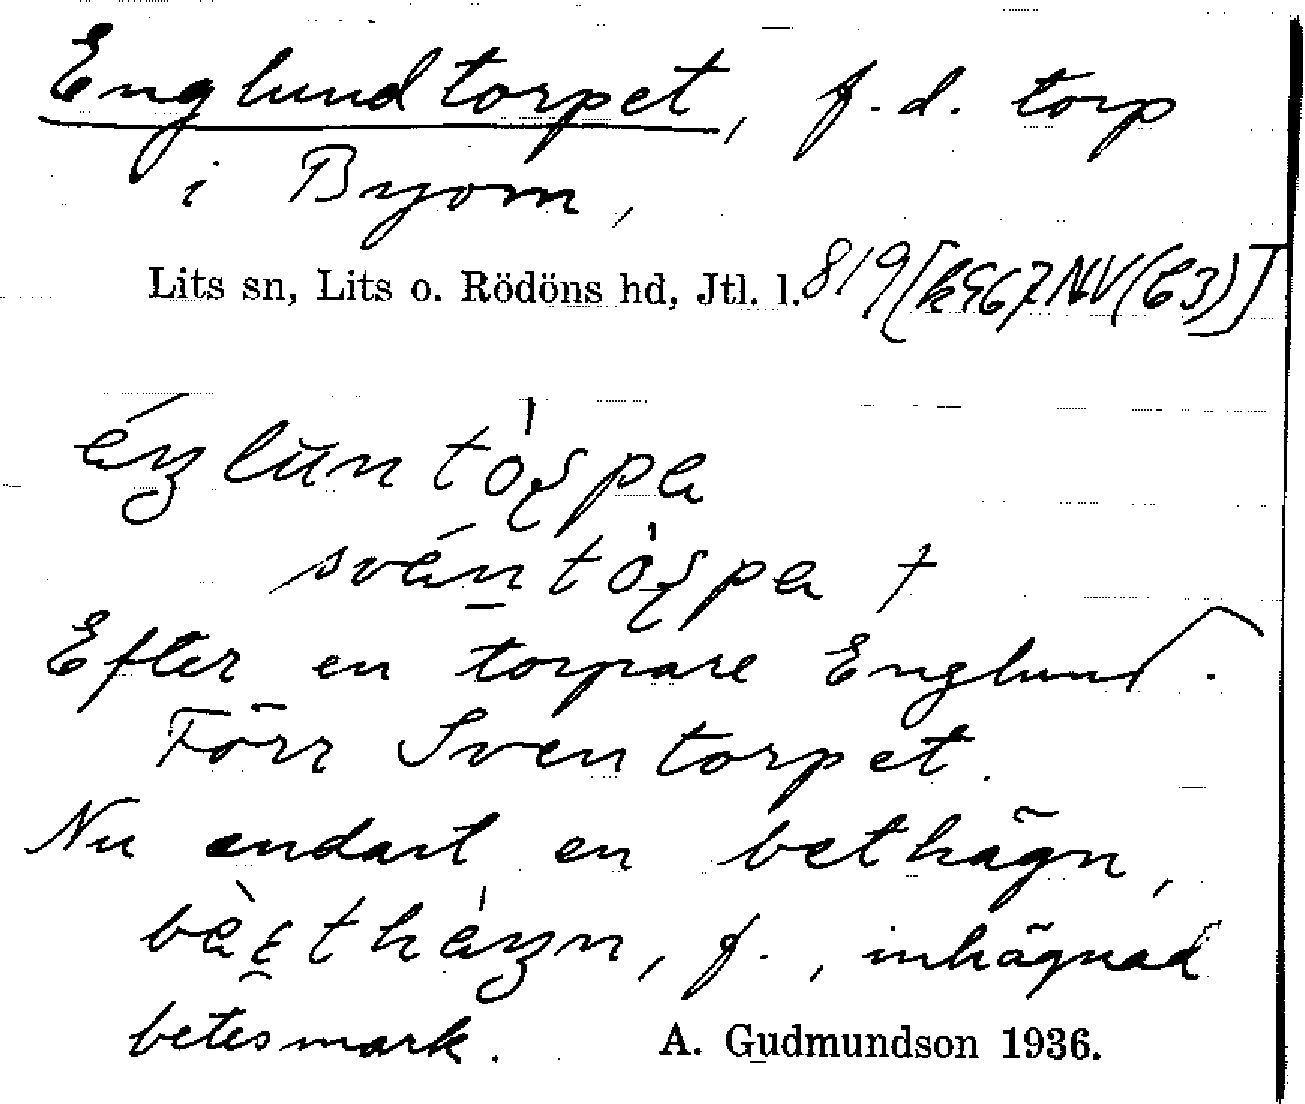 Englundtorpet, f.d. torp
i Byom,
Lits sn, Lits o. Rödöns hd, Jtl. l. 819
Efter en torpare Englund.
Förr Sventorpet.
Nu endast en bethägn,
f., inhägnad
betesmark. A. Gudmundson 1936.